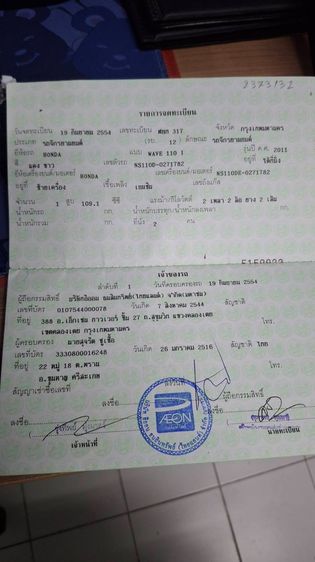 8373132
รายการจดทะเบียน
วันจดทะเบียน 19 กันยายน 2554 เลขทะเบียน 317 จังหวัด กรุงเทพมหานคร
ประเภท รถจักรยานยนต์ (รย. 12 ) ลักษณะ รถจักรยานยนต์
ยี่ห้อรถ HONDA แบบ WAVE 110 I รุ่นปี ค.ศ. 2011
สี แดง ขาว เลขตัวรถ NS110D-0271782 อยู่ที่
ยี่ห้อเครื่องยนต์/มอเตอร์ HONDA เลขเครื่องยนต์/มอเตอร์ NS110DE-0271782
อยู่ที่ ซ้ายเครื่อง เชื้อเพลิง เบนซิน เลขถังแก๊ส
จำนวน 1 สูบ 109.1 ซีซี แรงม้า/กิโลวัตต์ 2 เพลา 2 ล้อ ยาง 2 เส้น
น้ำหนักรถ กก. น้ำหนักบรรทุก/น้ำหนักลงเพลา กก.
น้ำหนักรวม กก. ที่นั่ง 2 คน
เจ้าของรถ
ลำดับที่ 1 วันที่ครอบครองรถ 19 กันยายน 2554
ผู้ถือกรรมสิทธิ์ บริษัทอิออน ธนสินทรัพย์(ไทยแลนด์) จำกัด(มหาชน)
เลขที่บัตร 0107544000079 วันเกิด 7 สิงหาคม 2544 สัญชาติ
ที่อยู่ 388 อ.เอ็กเชน ทาวเวอร์ ชั้น 27 ถ.สุขุมวิท แขวงคลองเตย
เขตคลองเตย กรุงเทพมหานคร โทร.
ผู้ครอบครอง นายสุจวัด ชูเชื้อ
เลขที่บัตร 3330800016248 วันเกิด 26 มกราคม 2516 สัญชาติ ไทย
ที่อยู่ 22 หมู่ 18 ต.พราน
อ.ขุนหาญ ศรีสะเกษ โทร.
สัญญาเช่าซื้อเลขที่ ผู้ถือกรรมสิทธิ์
ลงชื่อ
ลงชื่อ ลงชื่อ
เจ้าหน้าที่ นายทะเบียน
ÆON